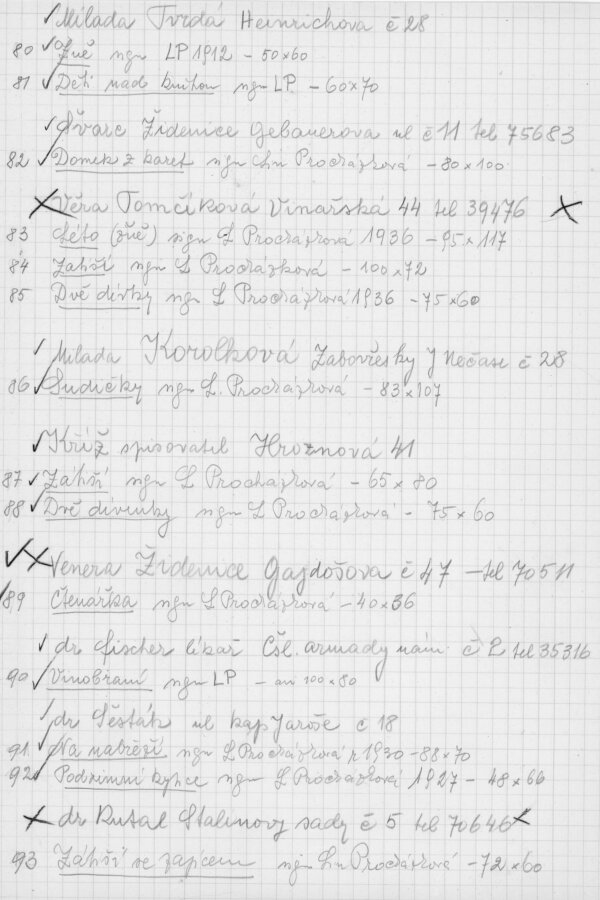 Milada Tvrdá Heinrichova č 28
80 Žně ngn LP 1912 - 50x60
81 Děti nad knihou ngn LP - 60x70
Švarc Židenice Gebauerova ul č 11 tel 75683
82 Domek z karet ngn Lin Procházková - 80x100
Věra Tomčíková Vinařská 44 tel 39476
83 Léto (žně) sign L Procházková 1936 - 95x117
84 Zátiší ngn L Procházková - 100x72
85 Dvě dívky ngn L Procházková 1936 - 75x60
Milada Korolková Žabovřesky J Nečase č 28
86 Sudičky ngn L. Procházková - 83x107
Kříž spisovatel Hroznová 41
87 Zátiší ngn L Procházková - 65x80
88 Dvě divenky ngn L Procházková - 75x60
Venera Židenice Gajdošova č 47 - tel 70511
89 Čtenářka ngn L Procházková - 40x36
dr fischer lékař Čsl. armády nám č 2 tel 35316
90 Vinobraní ngn LP - asi 100x80
dr Šesták ul kap Jaroše č 18
91 Na nábřeží ngn L Procházková r 1930 - 88x70
92 Podzimní kytice ngn L Procházková 1927 - 48x66
dr Kutal Stalinovy sady č 5 tel 70646
93 Zátiší se zajícem ngn Lin Procházková - 72x60